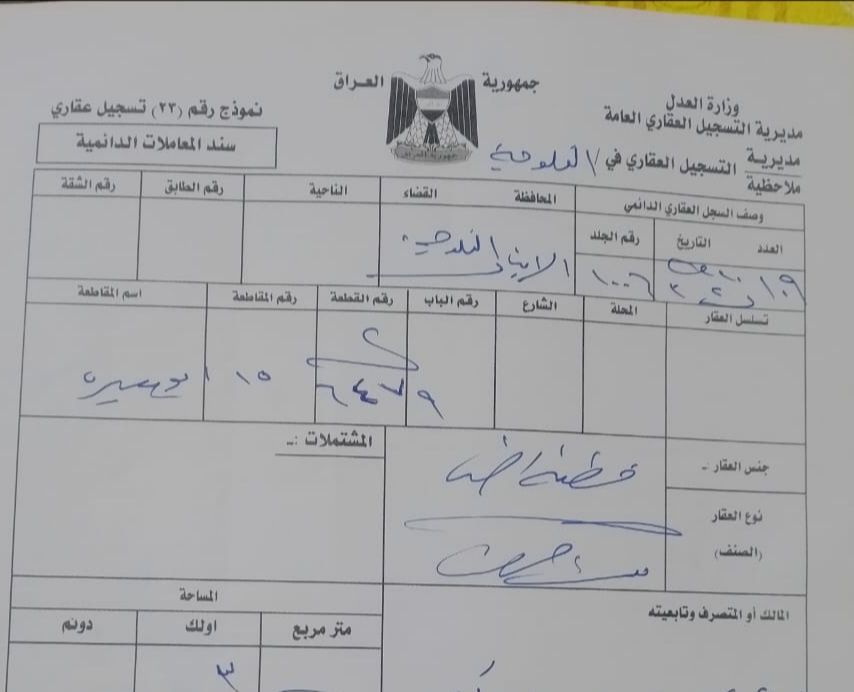 جمهورية العراق
وزارة العدل
مديرية التسجيل العقاري العامة
مديرية
ملاحظية
التسجيل العقاري في / الفلوجة
نموذج رقم (٢٣) تسجيل عقاري
سند المعاملات الدائمية
وصف السجل العقاري الدائمي
المحافظة القضاء الناحية رقم الطابق رقم الشقة
العدد التاريخ رقم الجلد
الانبار الفلوجة
١٠٩ ١٠٠٦
تسلسل العقار المحلة الشارع رقم الباب رقم القطعة رقم المقاطعة اسم المقاطعة
١٥
جنس العقار :-
قطعة ارض
المشتملات :-
نوع العقار
(الصنف)
المالك أو المتصرف وتابعيته
المساحة
متر مربع اولك دونم
٣